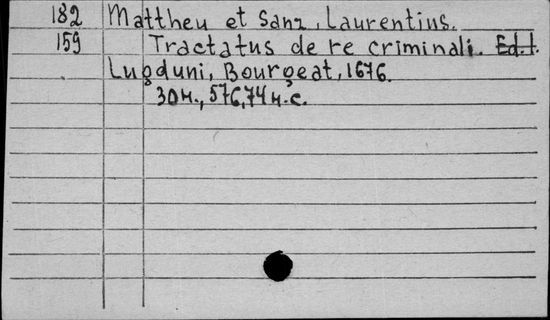 182 Mattheu et Sanz, Laurentius.
159 Tractatus de re criminali. Ed.1.
Lugduni, Bourgeat, 1676.
30н., 576,74 н.с.